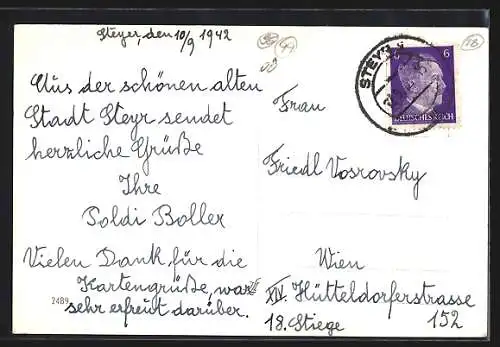 Steyer, den 10/9 1942
Aus der schönen alten
Stadt Steyr sendet
herzliche Grüße
Ihre
Poldi Boller
Vielen Dank für die
Kartengrüße, war
sehr erfreut darüber.
2489
STEYR
6 6
DEUTSCHES REICH
Frau
Friedl Vosrovsky
Wien
XIV. Hütteldorferstrasse
18. Stiege 152